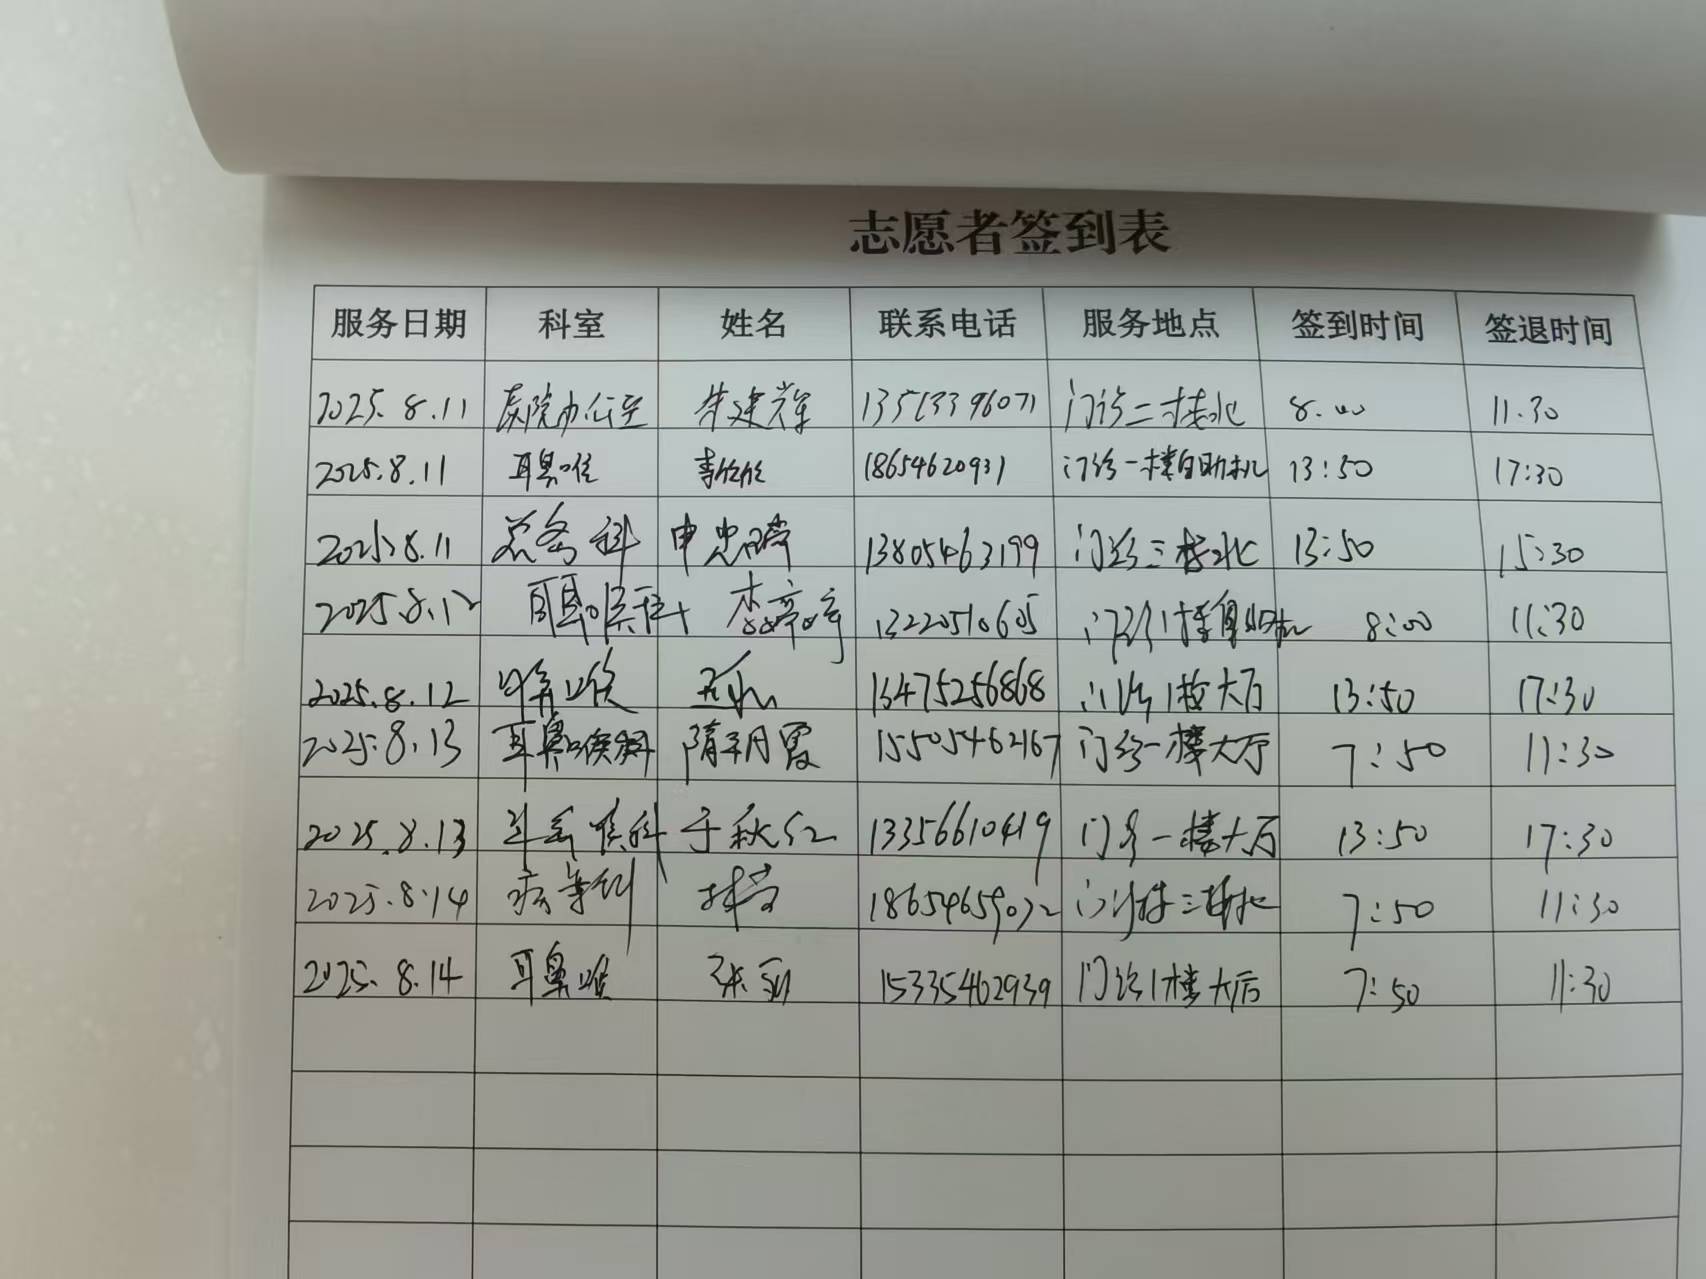 志愿者签到表
服务日期 科室 姓名 联系电话 服务地点 签到时间 签退时间
2025.8.11 医院办公室 朱建军 13573396071 门诊二楼北 8:00 11:30
2025.8.11 耳鼻喉 李欣欣 18654620931 门诊一楼自助机 13:50 17:30
2025.8.11 总务科 申忠瑞 13805463199 门诊三楼北 13:50 15:30
2025.8.12 耳鼻喉科 李婷婷 13220510605 门诊1楼自助机 8:00 11:30
2025.8.12 耳鼻喉 13475256868 门诊1楼大厅 13:50 17:30
2025.8.13 耳鼻喉科 隋月霞 15505462167 门诊一楼大厅 7:50 11:30
2025.8.13 耳鼻喉科 于秋红 13356610419 门诊一楼大厅 13:50 17:30
2025.8.14 18654659072 门诊楼三楼北 7:50 11:30
2025.8.14 耳鼻喉 张 15335462939 门诊1楼大厅 7:50 11:30